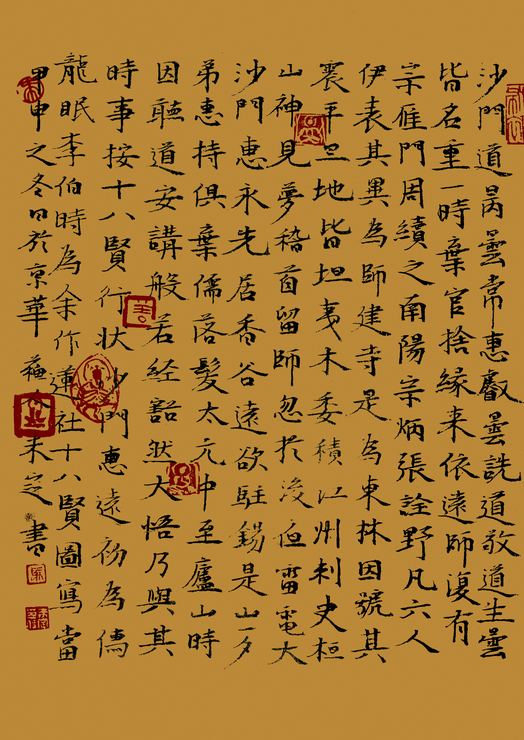 龍眠李伯時為余作蓮社十八賢圖寫當
時事按十八賢行状沙門惠遠初為儒
因聽道安講般若經豁然大悟乃與其
弟惠持俱棄儒落髮太元中至廬山時
沙門惠永先居香谷遠欲駐錫是山一夕
山神見夢稽首留師忽於後夜雷電大
震平旦地皆坦夷木委積江州刺史桓
伊表其異為師建寺是為東林因號其
宗雁門周續之南陽宗炳張詮野凡六人
皆名重一時棄官捨緣来依遠師復有
沙門道昺曇常惠叡曇詵道敬道生曇
甲申之冬日於京華 書